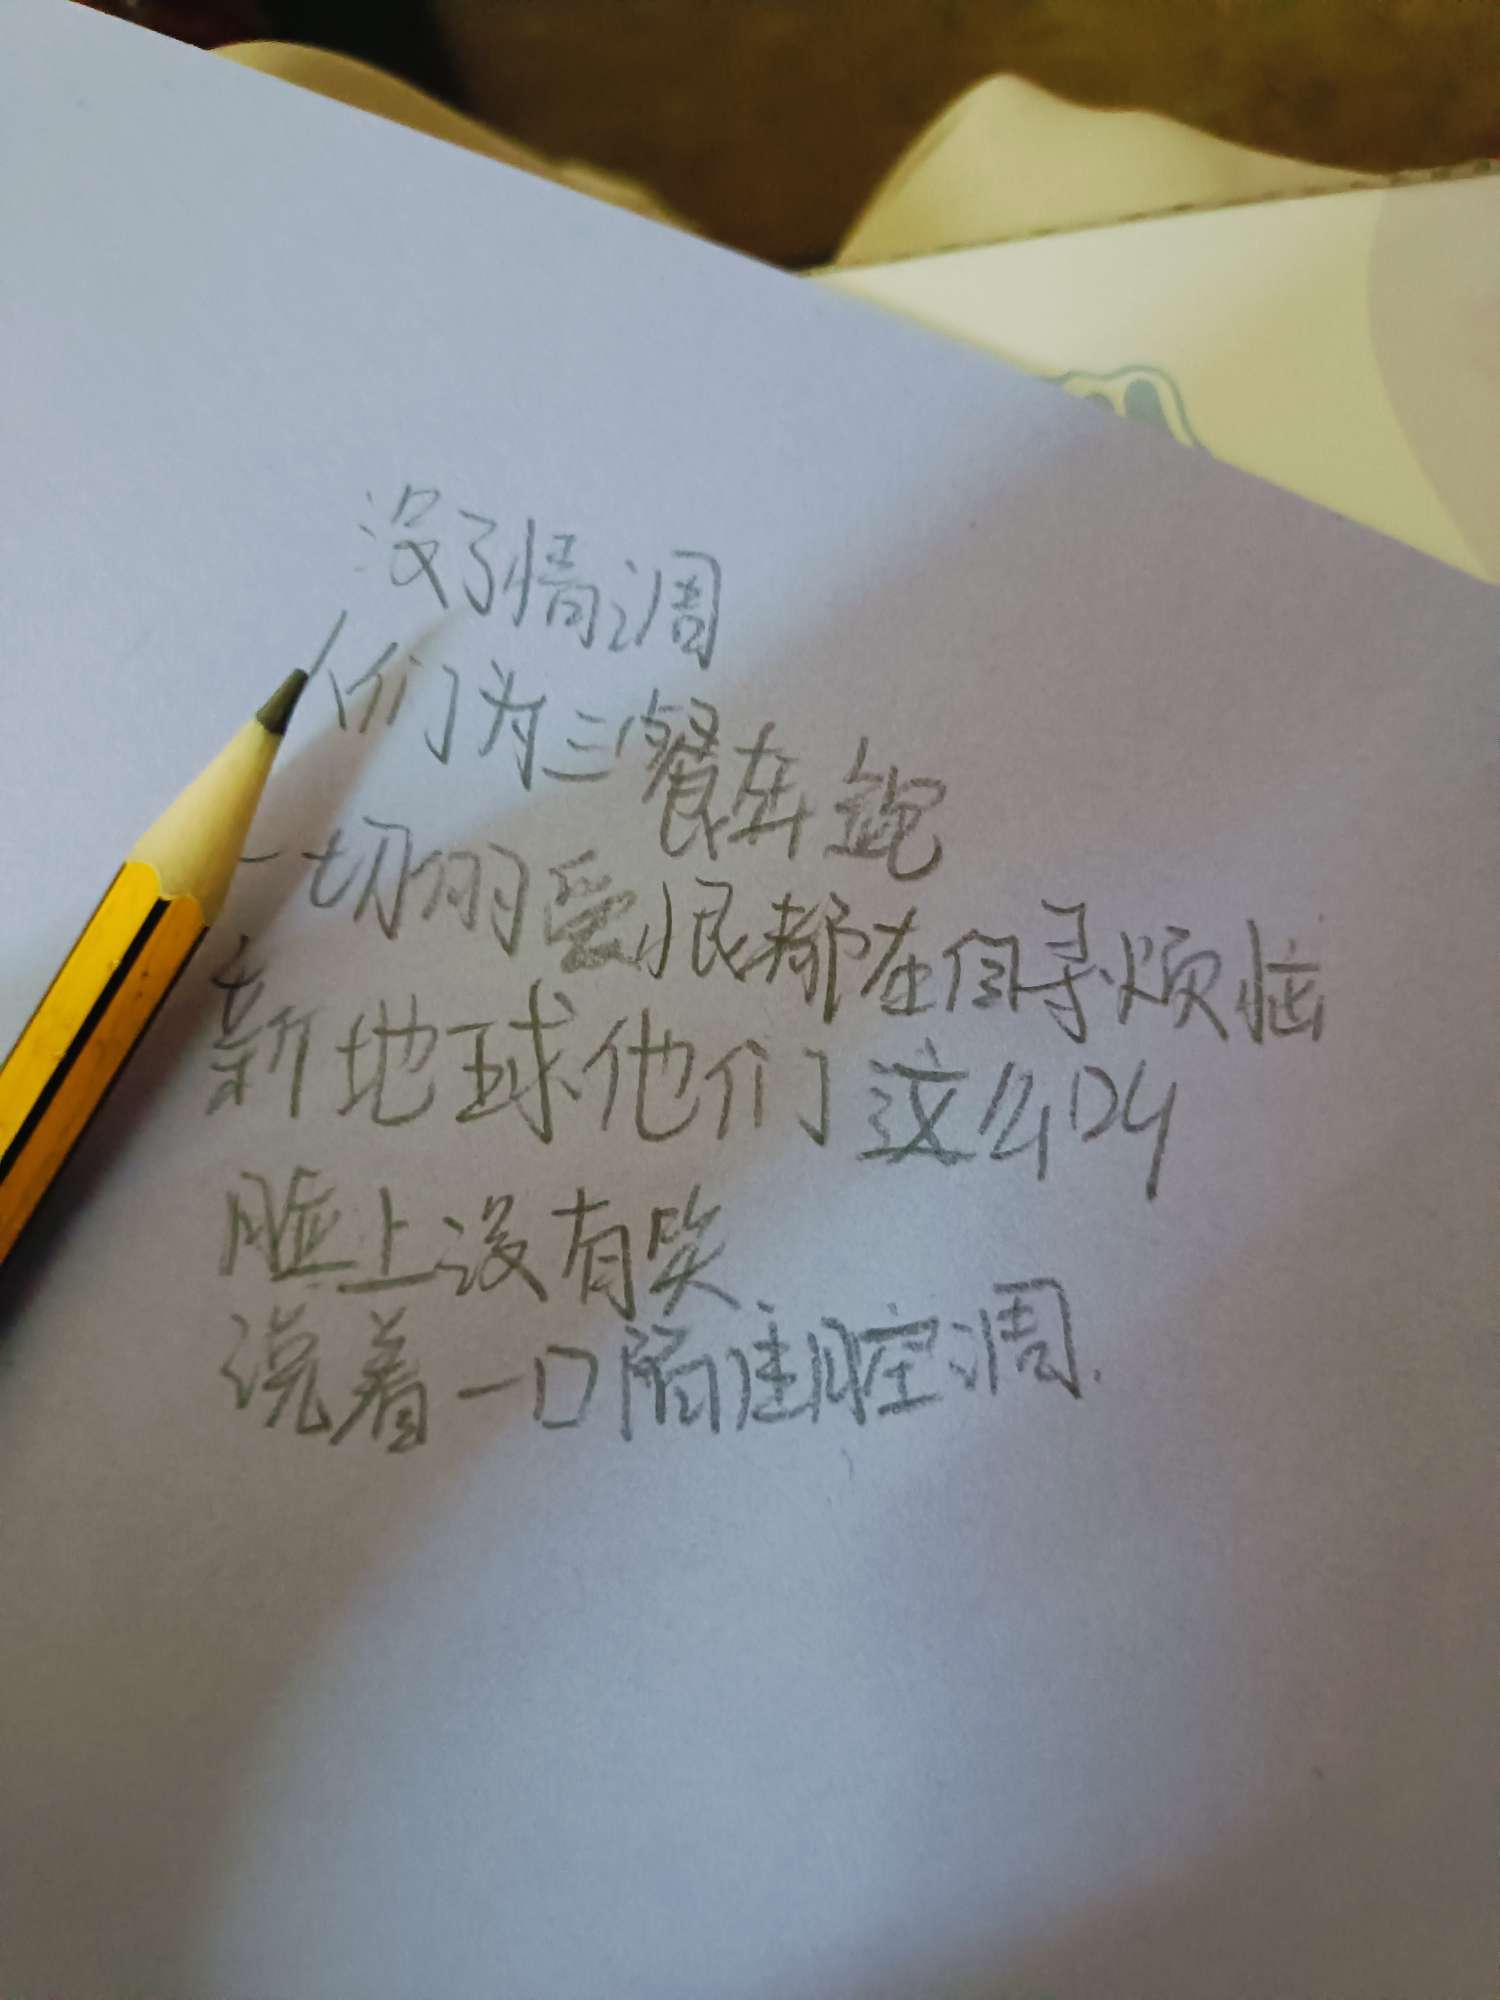 没了情调
人们为三餐奔跑
一切的爱恨都在自寻烦恼
新地球他们这么叫
脸上没有笑
说着一口陌生腔调